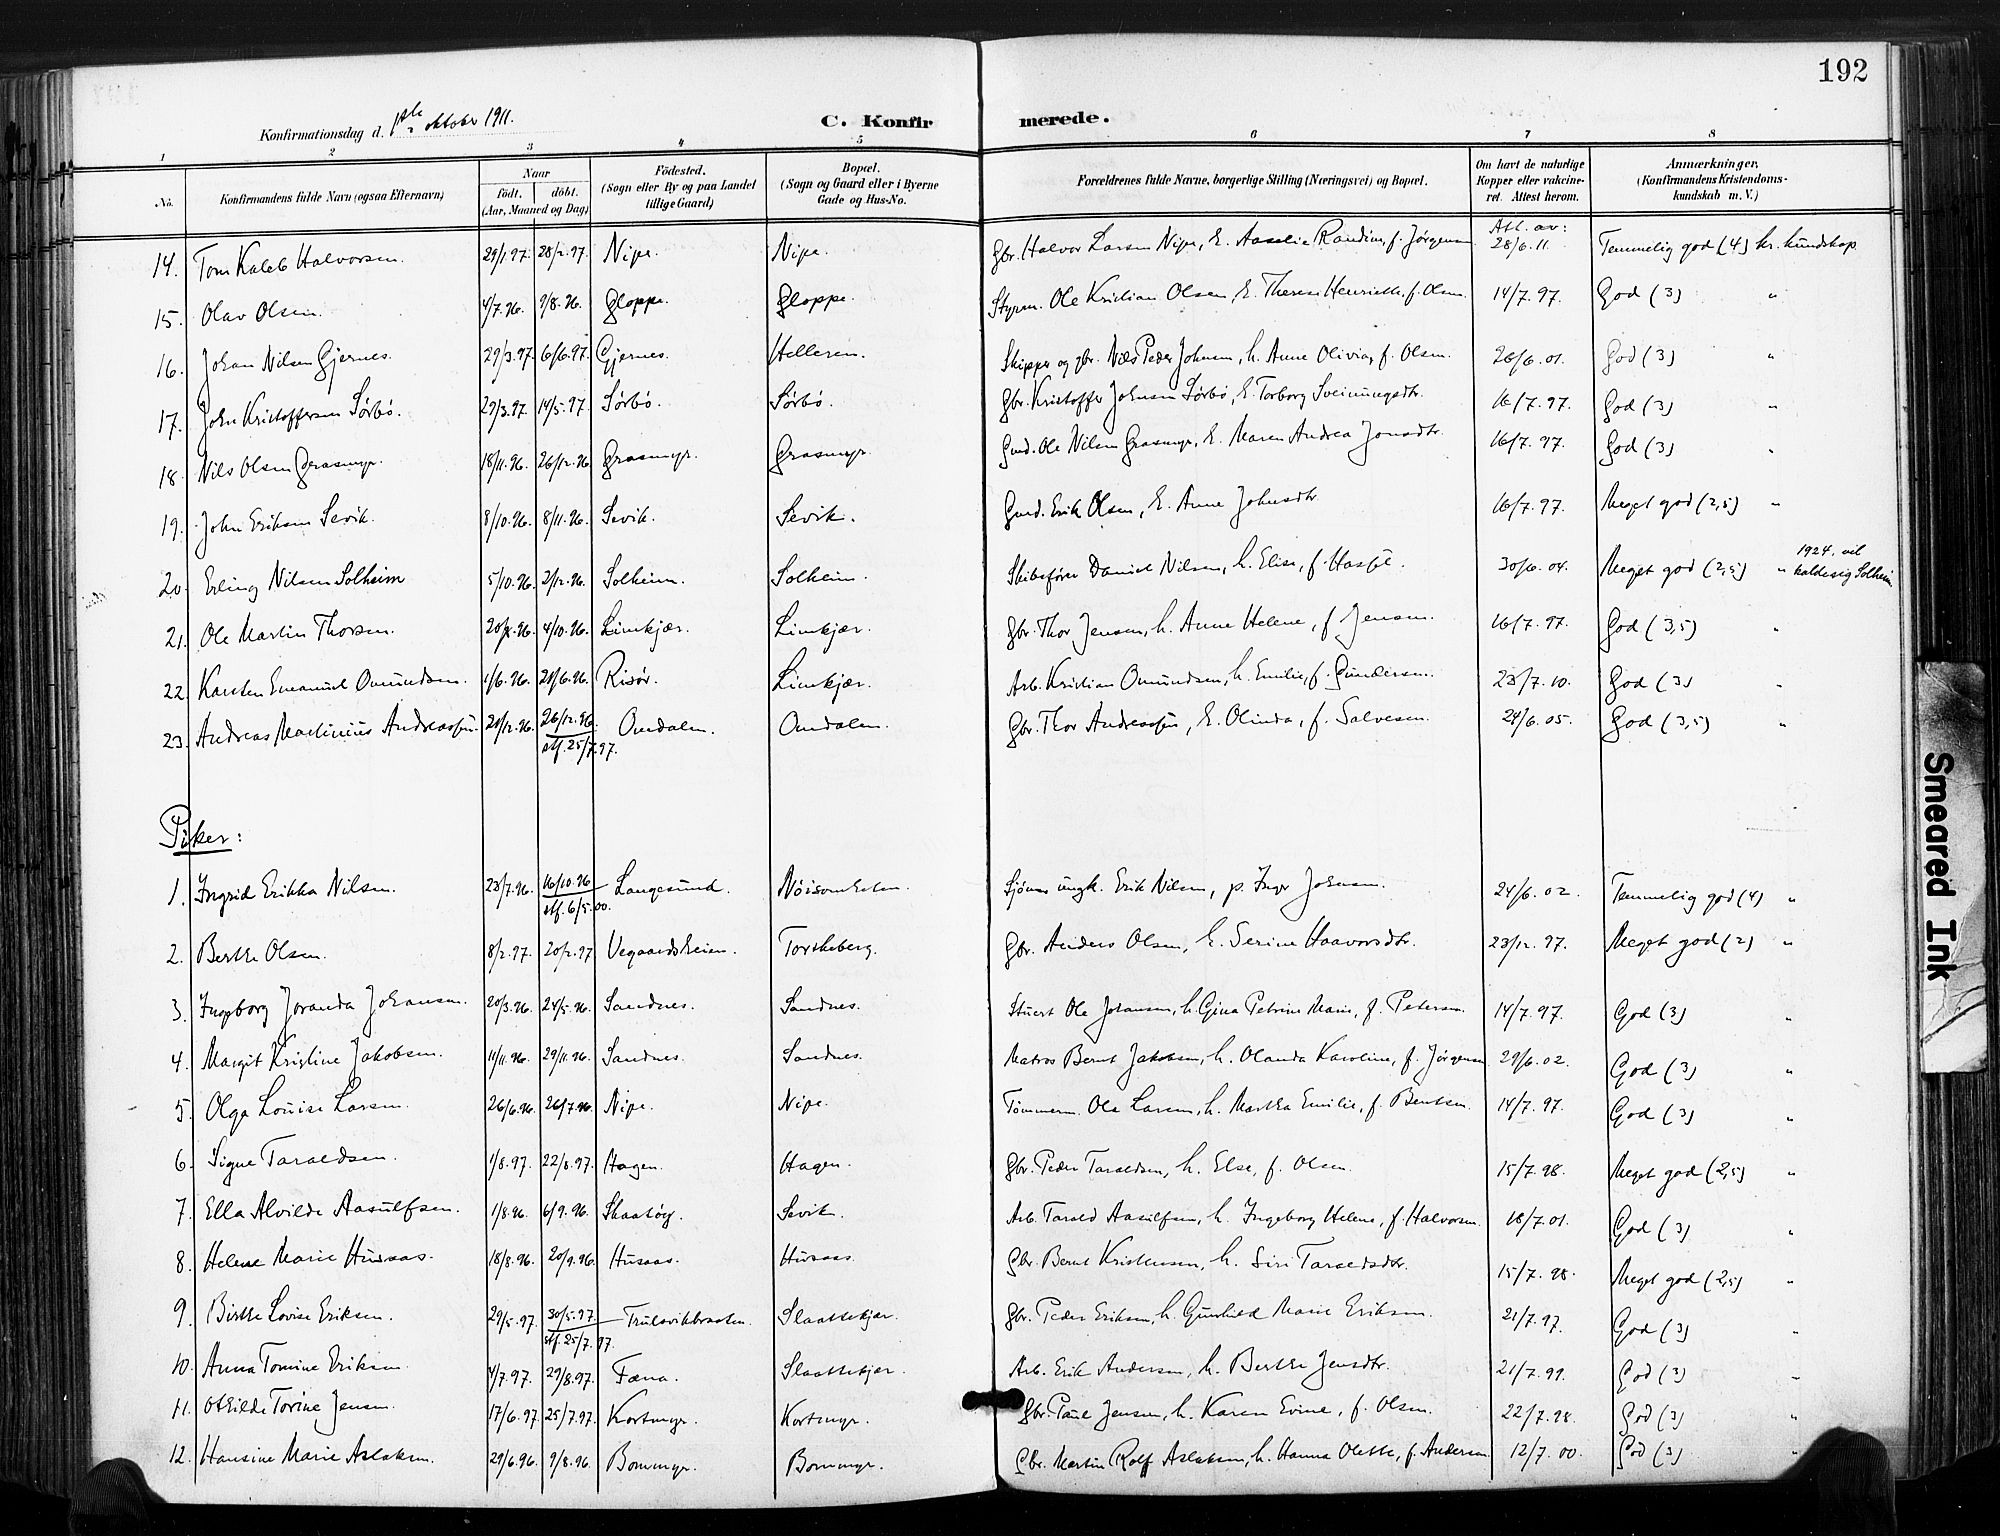 192
Konfirmationsdag d. 1ste oktober 1911.
C. Konfirmerede.
1 2 3 4 5 6 7 8
No. Konfirmandens fulde Navn (ogsaa Efternavn) Naar födt. döbt. (Aar, Maaned og Dag) Födested. (Sogn eller By og paa Landet tillige Gaard) Bopæl. (Sogn og Gaard eller i Byerne Gade og Hus-No. Forældrenes fulde Navne, borgerlige Stilling (Næringsvei) og Bopæl. Om havt de naturlige Kopper eller vakcineret. Attest herom. Anmærkninger. (Konfirmandens Kristendomskundskab m. V.)
14. Tom Kaleb Halvorsen. 29/1.97. 28/2.97. Nipe. Nipe. Gbr. Halvor Larsen Nipe, h. Aaselie Randine, f. Jörgensen Att. av: 28/6.11. Temmelig god (4) kr. kundskap.
15. Olav Olsen. 4/7.96. 9/8.96. Gloppe. Gloppe. Styrm. Ole Kristian Olsen, h. Therese Henriette, f. Olsen. 14/7.97. God (3) "
16. Johan Nilsen Gjernes. 29/3.97. 6/6.97. Gjernes. Helleren. Skipper og gbr. Nils Peder Johnsen, h. Anne Olivia, f. Olsen. 26/6.01. God (3) "
17. John Kristoffersen Sörbö. 29/3.97. 14/5.97. Sörbö. Sörbö. Gbr. Kristoffer Johnsen Sörbö, h. Torborg Sveinungsdtr. 16/7.97. God (3) "
18. Nils Olsen Grasmyr. 18/11.96. 26/12.96 Grasmyr. Grasmyr. Gmd. Ole Nilsen Grasmyr, h. Maren Andrea Jonsdtr. 16/7.97. God (3) "
19. John Eriksen Sevik. 8/10.96. 8/11.96. Sevik. Sevik. Gmd. Erik Olsen, h. Anne Johnsdtr. 16/7.97. Meget god (2,5) "
20. Erling Nilsen Solheim 5/10.96. 2/12.96. Solheim. Solheim. Skibsförer Daniel Nilsen, h. Elise, f. 30/6.04. Meget god (2,5) " 1924. vil kalde sig Solheim
21. Ole Martin Thorsen. 4/10.96. Limkjær. Limkjær. Gbr. Thor Jensen, h. Anne Helene, f. Jensen. 16/7.97. God (3,5) "
22. Karsten Emanuel Omundsen. 1/6.96. 28/6.96. Risör. Limkjær. Arb. Kristian Omundsen, h. Emilie, f. Gundersen. 23/7.10. God (3) "
23. Andreas Martinius Andreassen. 21/12.96. 26/12.96. stf. 25/7.97. Omdalen. Omdalen. Gbr. Thor Andreassen, h. Olinda, f. Salvesen. 24/6.05. God (3,5) "
Piker:
1. Ingrid Erikka Nilsen. 23/7.96. 16/10.96 stf. 6/5.00. Langesund. Nöisomheten. Sjömand ungk. Erik Nilsen, p. Inger Johnsen. 24/6.02. Temmelig god (4) "
2. Berthe Olsen. 8/2.97. 20/2.97 Vegaardsheien. Torskeberg. Gbr. Anders Olsen, h. Serine Haavorsdtr. 23/12.97. Meget god (2) "
3. Ingeborg Joranda Johansen. 20/3.96. 24/5.96. Sandnes. Sandnes. Stuert Ole Johansen, h. Gina Petrine Marie, f. Petersen. 14/7.97. God (3) "
4. Margit Kristine Jakobsen. 11/11.96. 29/11.96. Sandnes. Sandnes. Matros Bernt Jakobsen, h. Olanda Karoline, f. Jörgensen 29/6.02. God (3) "
5. Olga Louise Larsen. 26/6.96. 26/7.96. Nipe. Nipe. Tömmerm. Ole Larsen, h. Martha Emilie, f. Bentsen. 14/7.97. God (3) "
6. Signe Taraldsen. 1/8.97. 22/8.97. Hagen. Hagen. Gbr. Peder Taraldsen, h. Else, f. Olsen. 15/7.98. Meget god (2,5) "
7. Ella Alvilde Aasulfsen. 1/8.96. 6/9.96. Skaatöy. Sevik. Arb. Tarald Aasulfsen, h. Ingeborg Helene, f. Halvorsen. 18/7.01. God (3) "
8. Helene Marie Husaas. 18/8.96. 20/9.96. Husaas. Husaas. Gbr. Bernt Kristensen, h. Siri Taraldsdtr. 15/7.98. Meget god (2,5) "
9. Birthe Lovise Eriksen. 29/5.97. 30/5.97. stf. 25/7.97. Trulsvikbraaten. Slaattekjær. Gbr. Peder Eriksen, h. Gunhild Marie Eriksen. 21/7.97. God (3) "
10. Anna Tomine Eriksen. 4/7.97. 29/8.97. Fæna. Slaattekjær. Arb. Erik Andersen, h. Berthe Jensdtr. 21/7.99. God (3) "
11. Othilde Torine Jensen. 17/6.97. 25/7.97. Kortmyr. Kortmyr. Gbr. Paul Jensen, h. Karen Evine, f. Olsen. 22/7.98. God (3) "
12. Hansine Marie Aslaksen. 29/6.96. 9/8.96. Bommyr. Bommyr. Gbr. Martin Rolf Aslaksen, h. Hanna Olette, f. Andersen 12/7.00. God (3) "
Smeared Ink